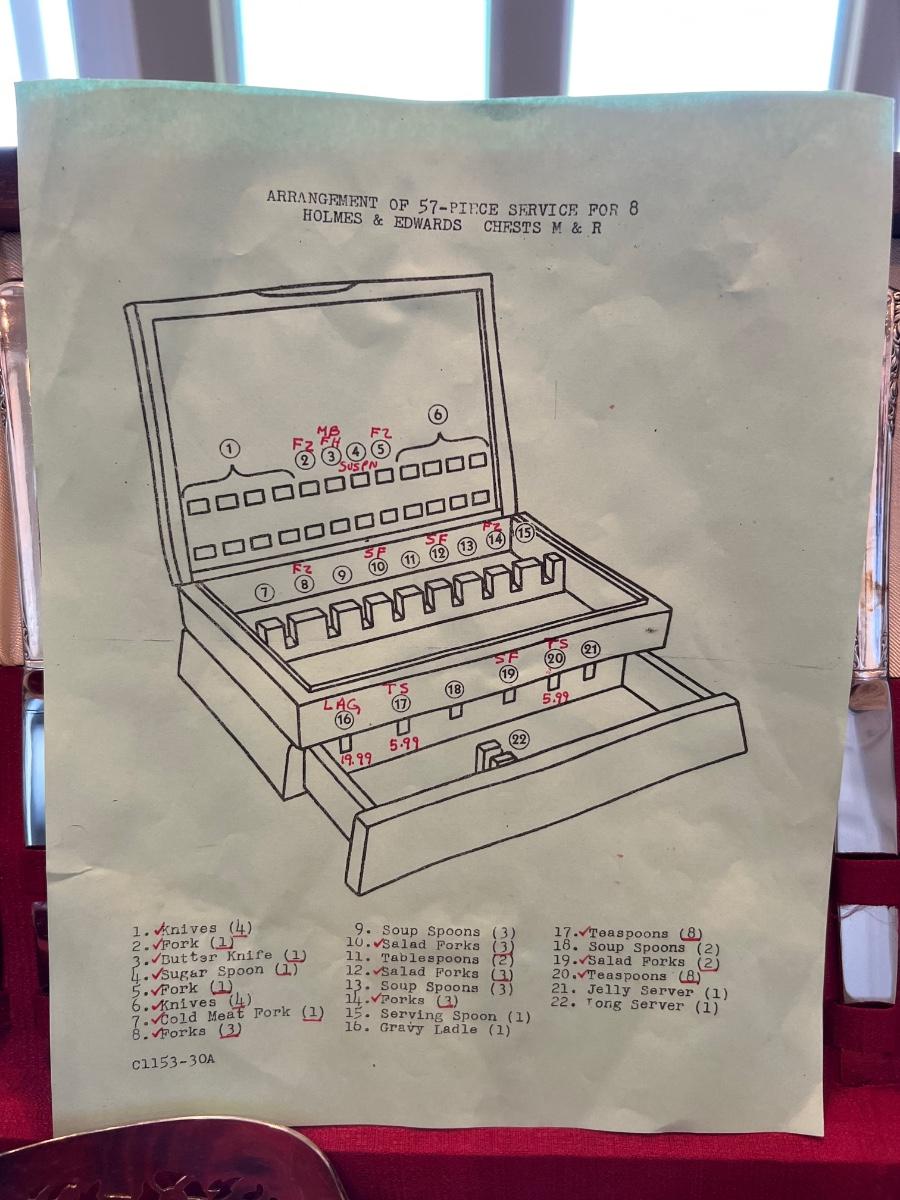 ARRANGEMENT OF 57-PIECE SERVICE FOR 8
HOLMES & EDWARDS CHESTS M & R
6
1
MB
FZ FH FZ
2 3 4 5
SUSPN
FZ
15
14
SF
13
12
SF
11
10
9
FZ
8
7
TS
21
20
SF
19
5.99
TS
18
17
LAG
16
5.99
19.99
22
1. ✓Knives (4)
2. ✓Fork (1)
3. ✓Butter Knife (1)
4. ✓Sugar Spoon (1)
5. ✓Fork (1)
6. ✓Knives (4)
7. ✓Cold Meat Fork (1)
8. ✓Forks (3)
9. Soup Spoons (3)
10. ✓Salad Forks (3)
11. Tablespoons (2)
12. ✓Salad Forks (3)
13. Soup Spoons (3)
14. ✓Forks (3)
15. Serving Spoon (1)
16. Gravy Ladle (1)
17. ✓Teaspoons (8)
18. Soup Spoons (2)
19. ✓Salad Forks (2)
20. ✓Teaspoons (8)
21. Jelly Server (1)
22. Tong Server (1)
C1153-30A